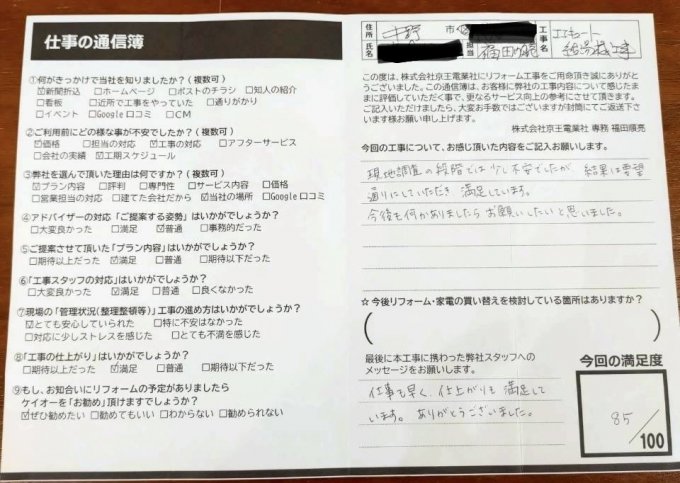 仕事の通信簿
①何がきっかけで当社を知りましたか？(複数可)
☑新聞折込 □ホームページ □ポストのチラシ □知人の紹介
□看板 □近所で工事をやっていた □通りがかり
□イベント □Google口コミ □CM
②ご利用前にどの様な事が不安でしたか？(複数可)
☑価格 □担当の対応 ☑工事の対応 □アフターサービス
□会社の実績 ☑工期スケジュール
③弊社を選んで頂いた理由は何ですか？(複数可)
☑プラン内容 □評判 □専門性 □サービス内容 □価格
□営業担当の対応 □建てた会社だから ☑当社の場所 □Google口コミ
④アドバイザーの対応「ご提案する姿勢」はいかがでしょうか？
□大変良かった □満足 ☑普通 □事務的だった
⑤ご提案させて頂いた「プラン内容」はいかがでしょうか？
□期待以上だった ☑満足 □普通 □期待以下だった
⑥「工事スタッフの対応」はいかがでしょうか？
□大変良かった ☑満足 □普通 □良くなかった
⑦現場の「管理状況(整理整頓等)」工事の進め方はいかがでしょうか？
☑とても安心していられた □特に不安はなかった
□対応に少しストレスを感じた □とても不満を感じた
⑧「工事の仕上がり」はいかがでしょうか？
□期待以上だった ☑満足 □普通 □期待以下だった
⑨もし、お知合いにリフォームの予定がありましたら
ケイオーを「お勧め」頂けますでしょうか？
☑ぜひ勧めたい □勧めてもいい □わからない □勧められない
住所 中野 市
氏名 担当 福田
工事名 エコキュート
この度は、株式会社京王電業社にリフォーム工事をご用命頂き誠にありがと
うございました。この通信簿は、お客様に弊社の工事内容について感じたま
まに評価していただく事で、更なるサービス向上の参考にさせて頂きます。
ご記入いただけましたら、大変お手数ではございますが封筒にてご返送下さ
います様お願い申し上げます。
株式会社京王電業社 専務 福田順亮
今回の工事について、お感じ頂いた内容をご記入お願いします。
現地調査の段階では少し不安でしたが 結果は要望
通りにしていただき 満足しています。
今後も何かありましたらお願いしたいと思いました。
☆今後リフォーム・家電の買い替えを検討している箇所はありますか？
最後に本工事に携わった弊社スタッフへの
メッセージをお願いします。
仕事も早く、仕上がりも満足して
います。ありがとうございました。
今回の満足度
85
/100